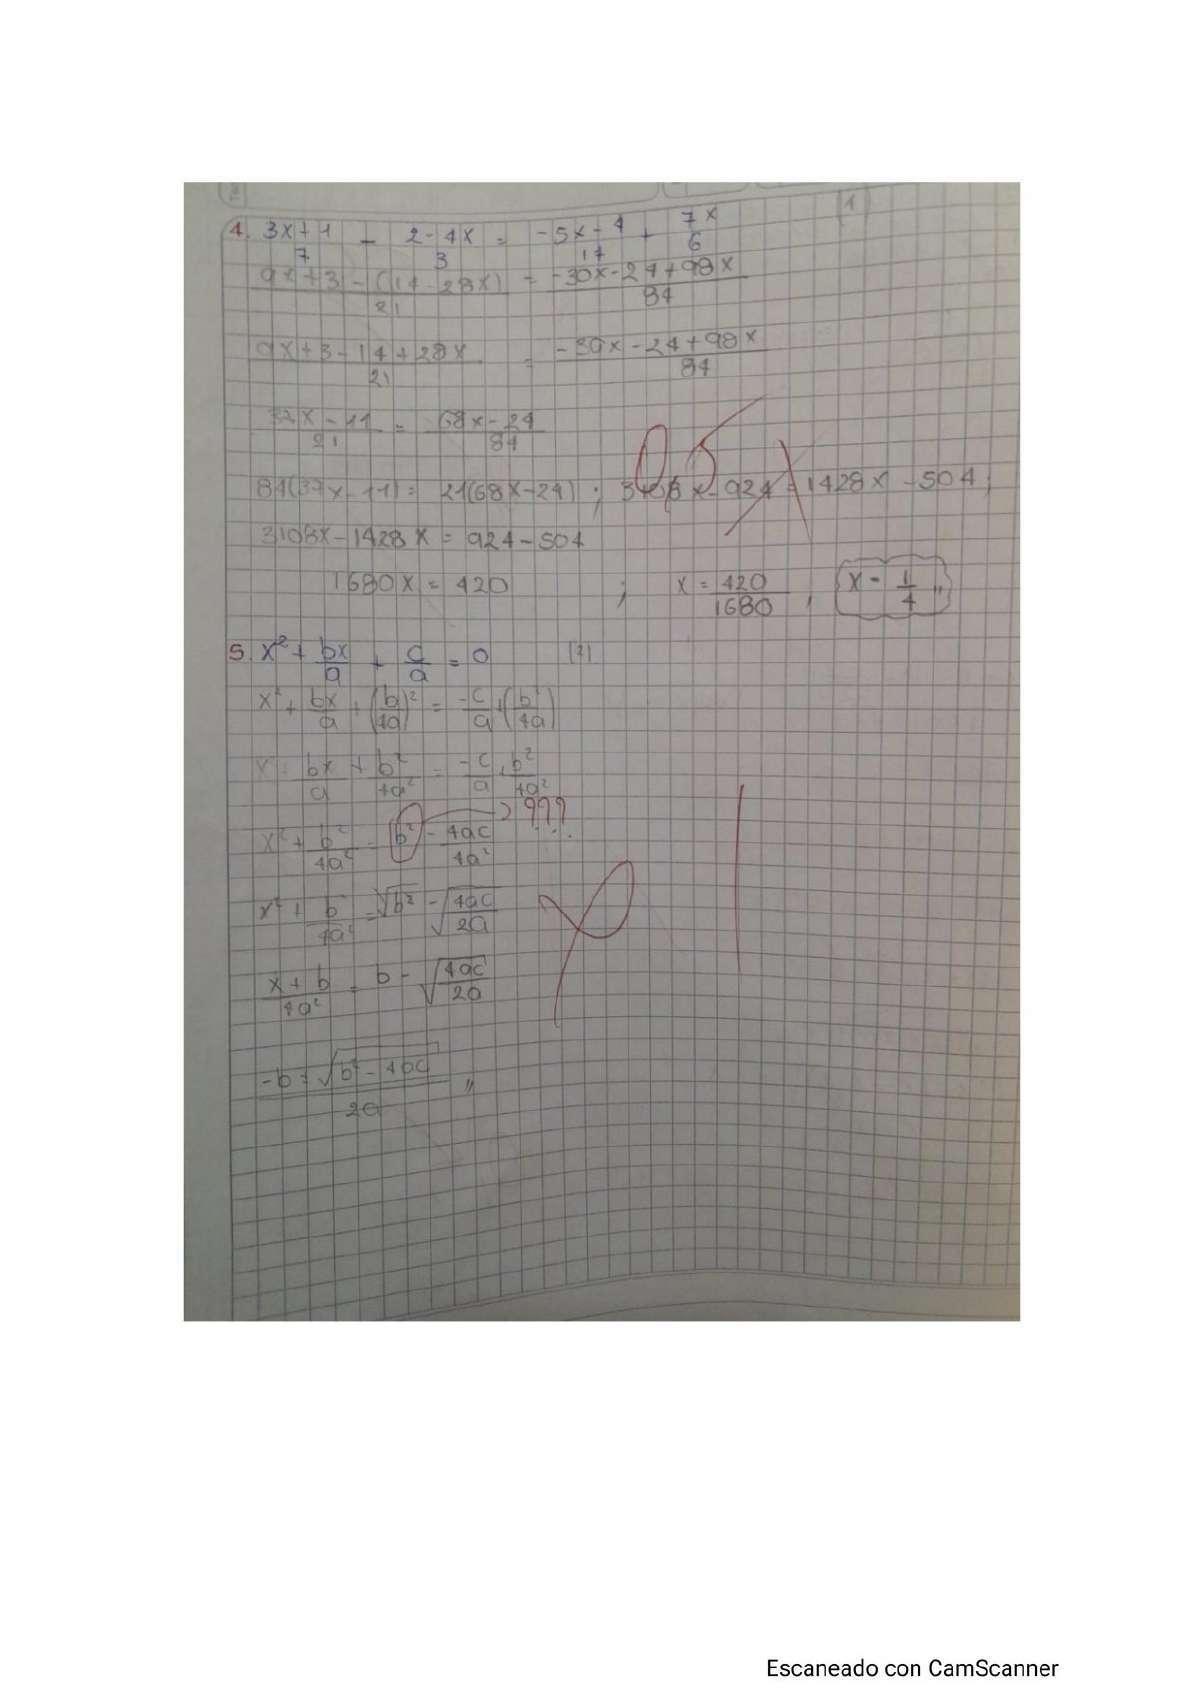 4. 3x+1/7 - 2-4x/3 = -5x-4/14 + 7x/6
9x+3-(14-28x)/21 = -30x-24+98x/84
9x+3-14+28x/21 = -30x-24+98x/84
37x-11/21 = 68x-24/84
84(37x-11) = 21(68x-24) ; 3108x-924 = 1428x-504 ;
3108x-1428x = 924-504
1680x = 420 ; x = 420/1680 , x = 1/4 "
1
0,5
5. x²+ bx/a + c/a = 0 (2)
x²+ bx/a + (b/4a)² = -c/a + (b²/4a)
x+ bx/a + b²/4a² = -c/a + b²/4a²
???
x²+ b²/4a² = b² - 4ac/4a²
x²+ b/4a² = √b² - √4ac/2a
x+b/4a² = b - √4ac/2a
-b±√b²-4ac/2a "
Escaneado con CamScanner